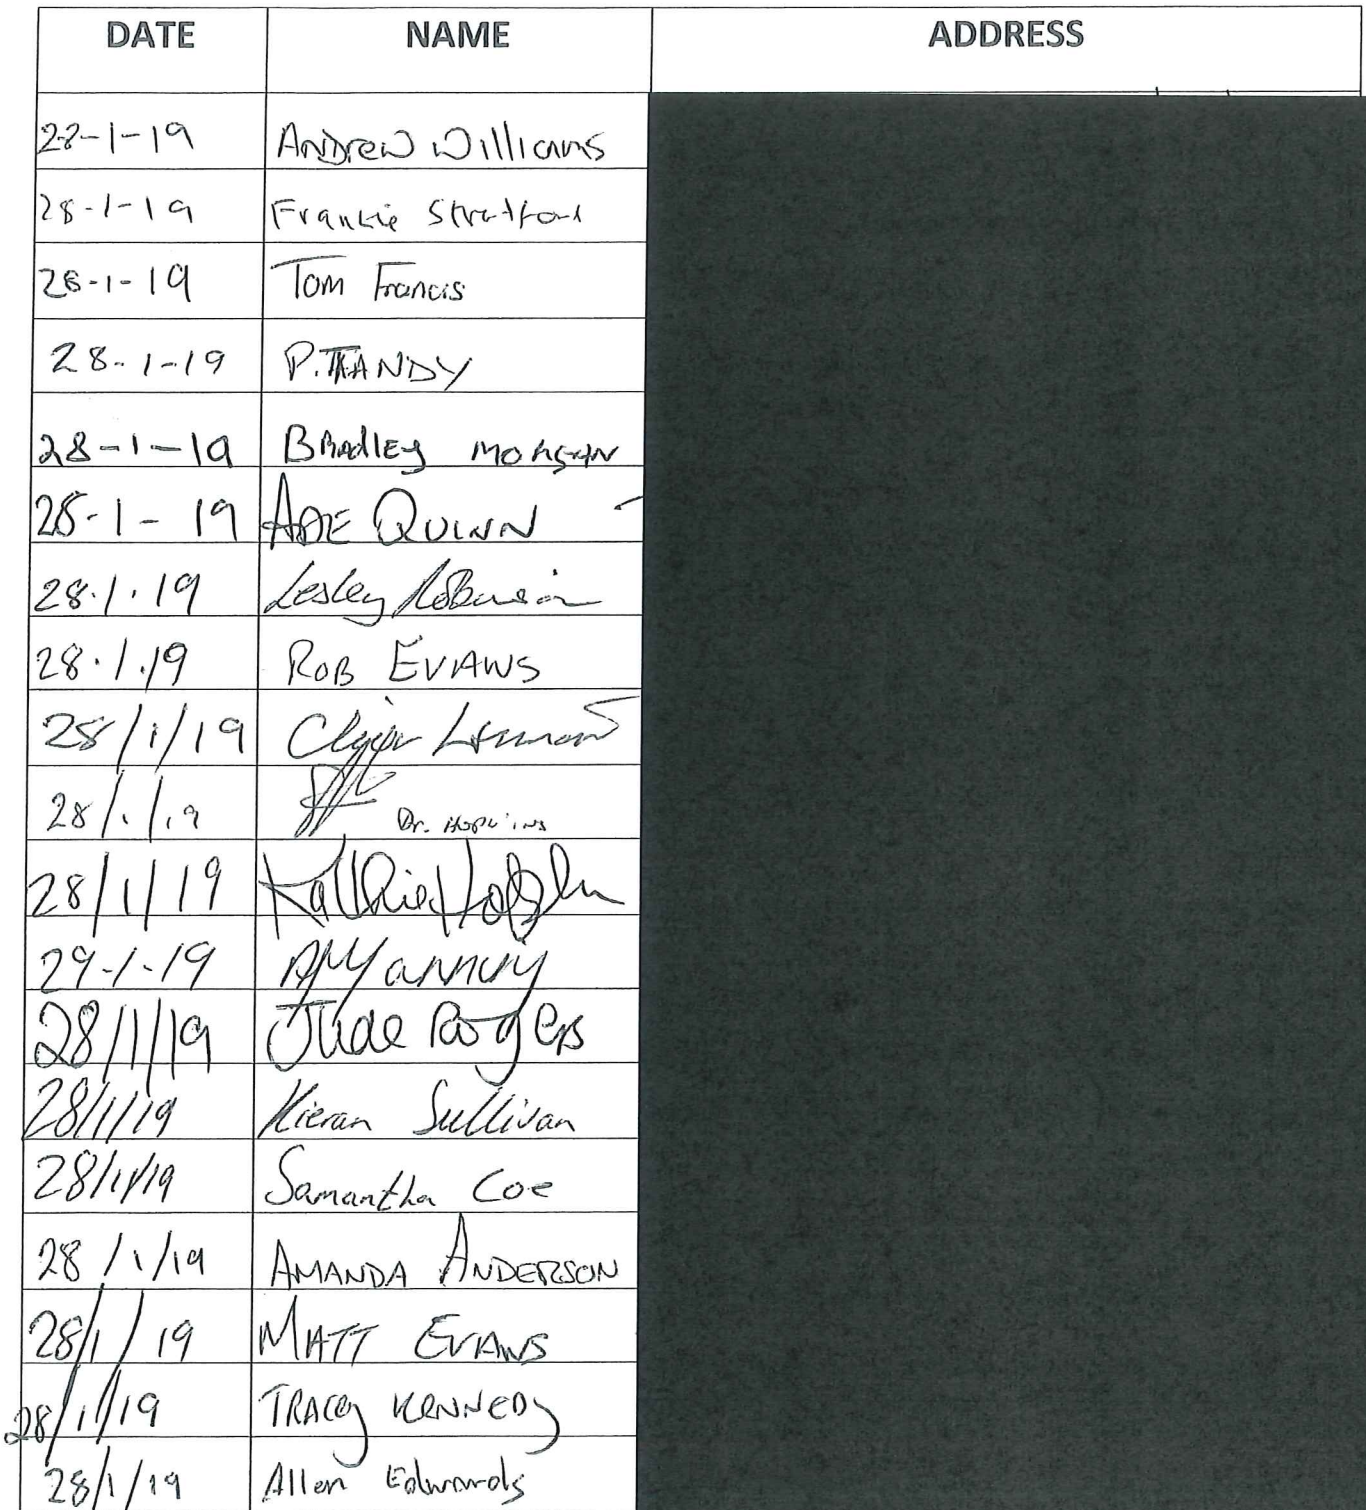 DATE NAME ADDRESS
28-1-19 Andrew Williams
28-1-19 Frankie Stratford
28-1-19 Tom Francis
28-1-19 P. TANDY
28-1-19 Bradley MORGAN
28-1-19 ADE QUINN
28.1.19 Lesley Robinson
28.1.19 ROB EVANS
28/1/19
28/1/19 Dr. HOPKINS
28/1/19
29-1-19
28/1/19 Jude Rogers
28/1/19 Kieran Sullivan
28/1/19 Samantha Coe
28/1/19 AMANDA ANDERSON
28/1/19 MATT EVANS
28/1/19 TRACEY KENNEDY
28/1/19 Allen Edwards